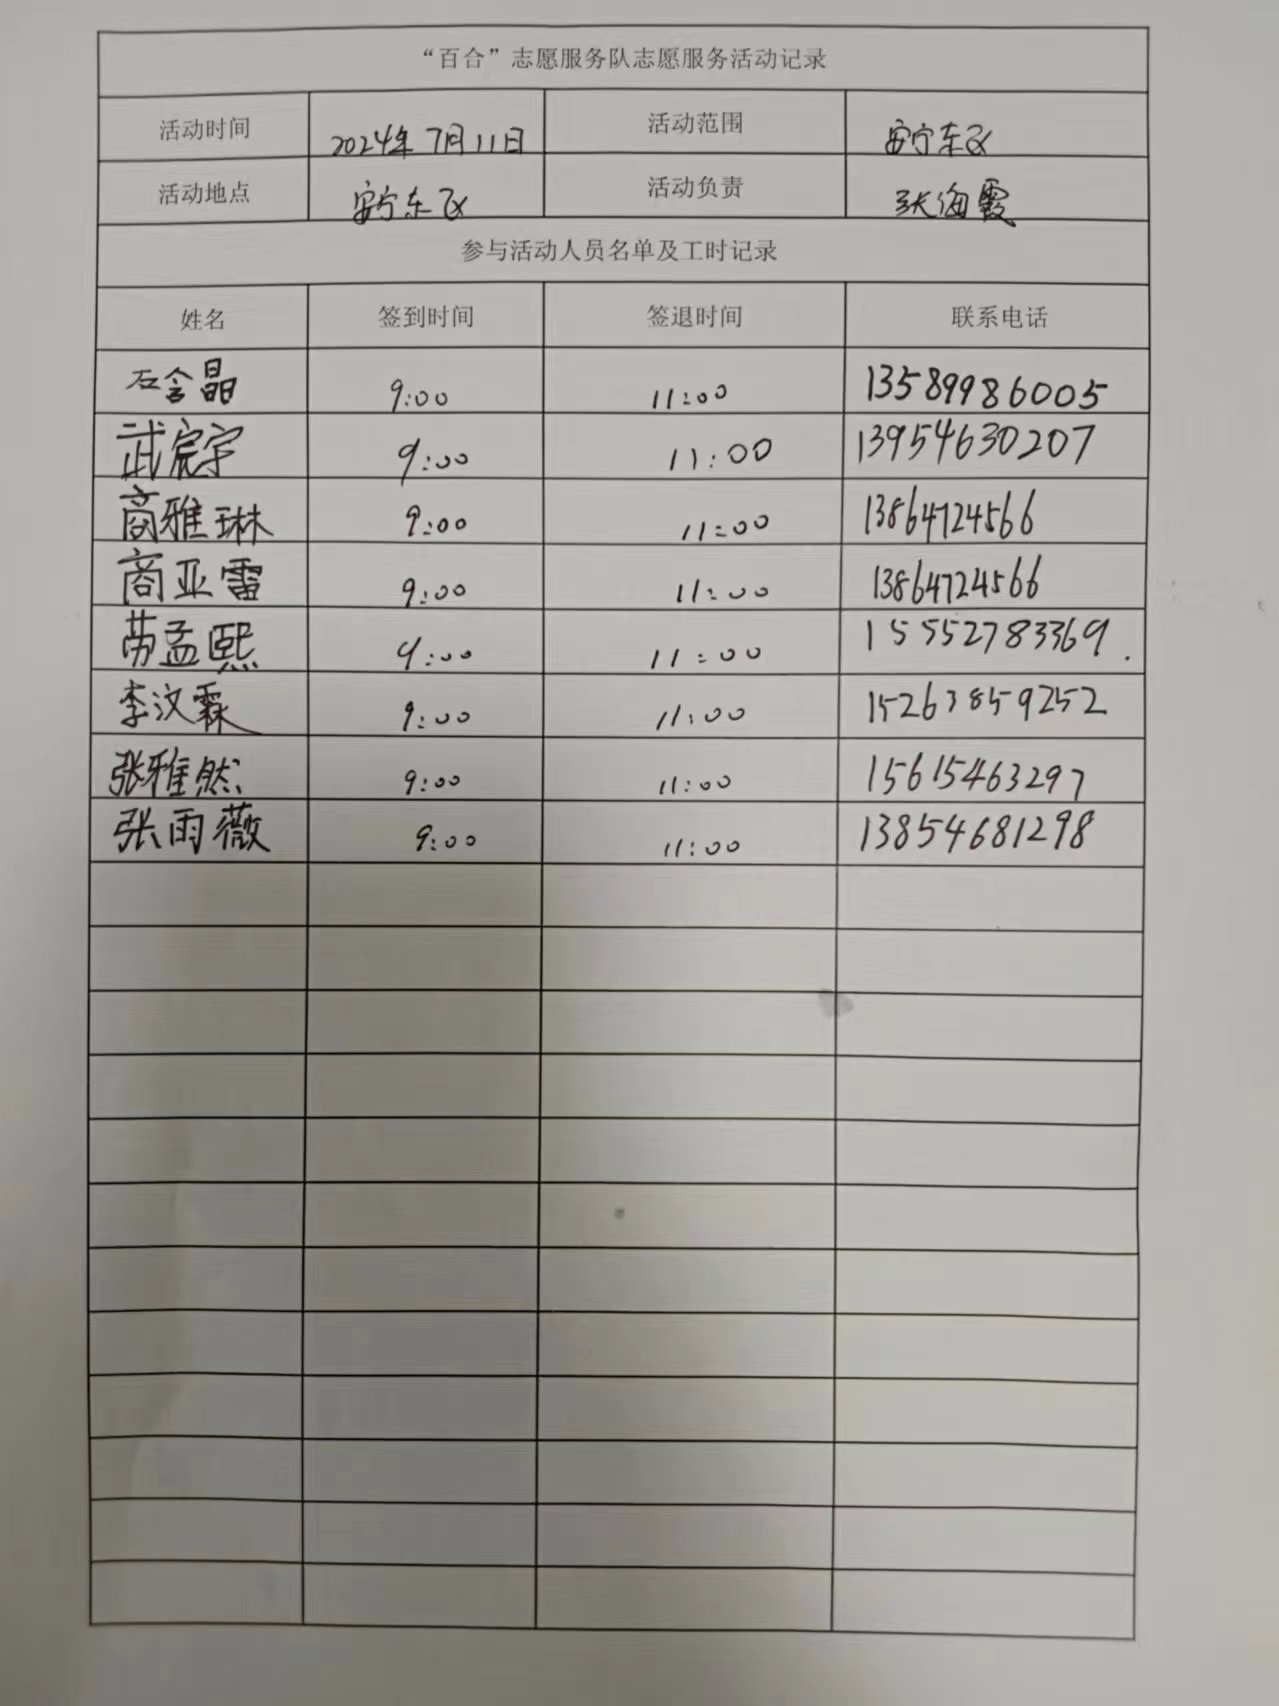 “百合”志愿服务队志愿服务活动记录
活动时间 2024年7月11日 活动范围 安宁东区
活动地点 安宁东区 活动负责 张海霞
参与活动人员名单及工时记录
姓名 签到时间 签退时间 联系电话
石含晶 9:00 11:00 13589986005
武宸宇 9:00 11:00 13954630207
商雅琳 9:00 11:00 13864724566
商亚雷 9:00 11:00 13864724566
苗孟熙 9:00 11:00 15552783369.
李汶霖 9:00 11:00 15263859252
张雅然 9:00 11:00 15615463297
张雨薇 9:00 11:00 13854681298